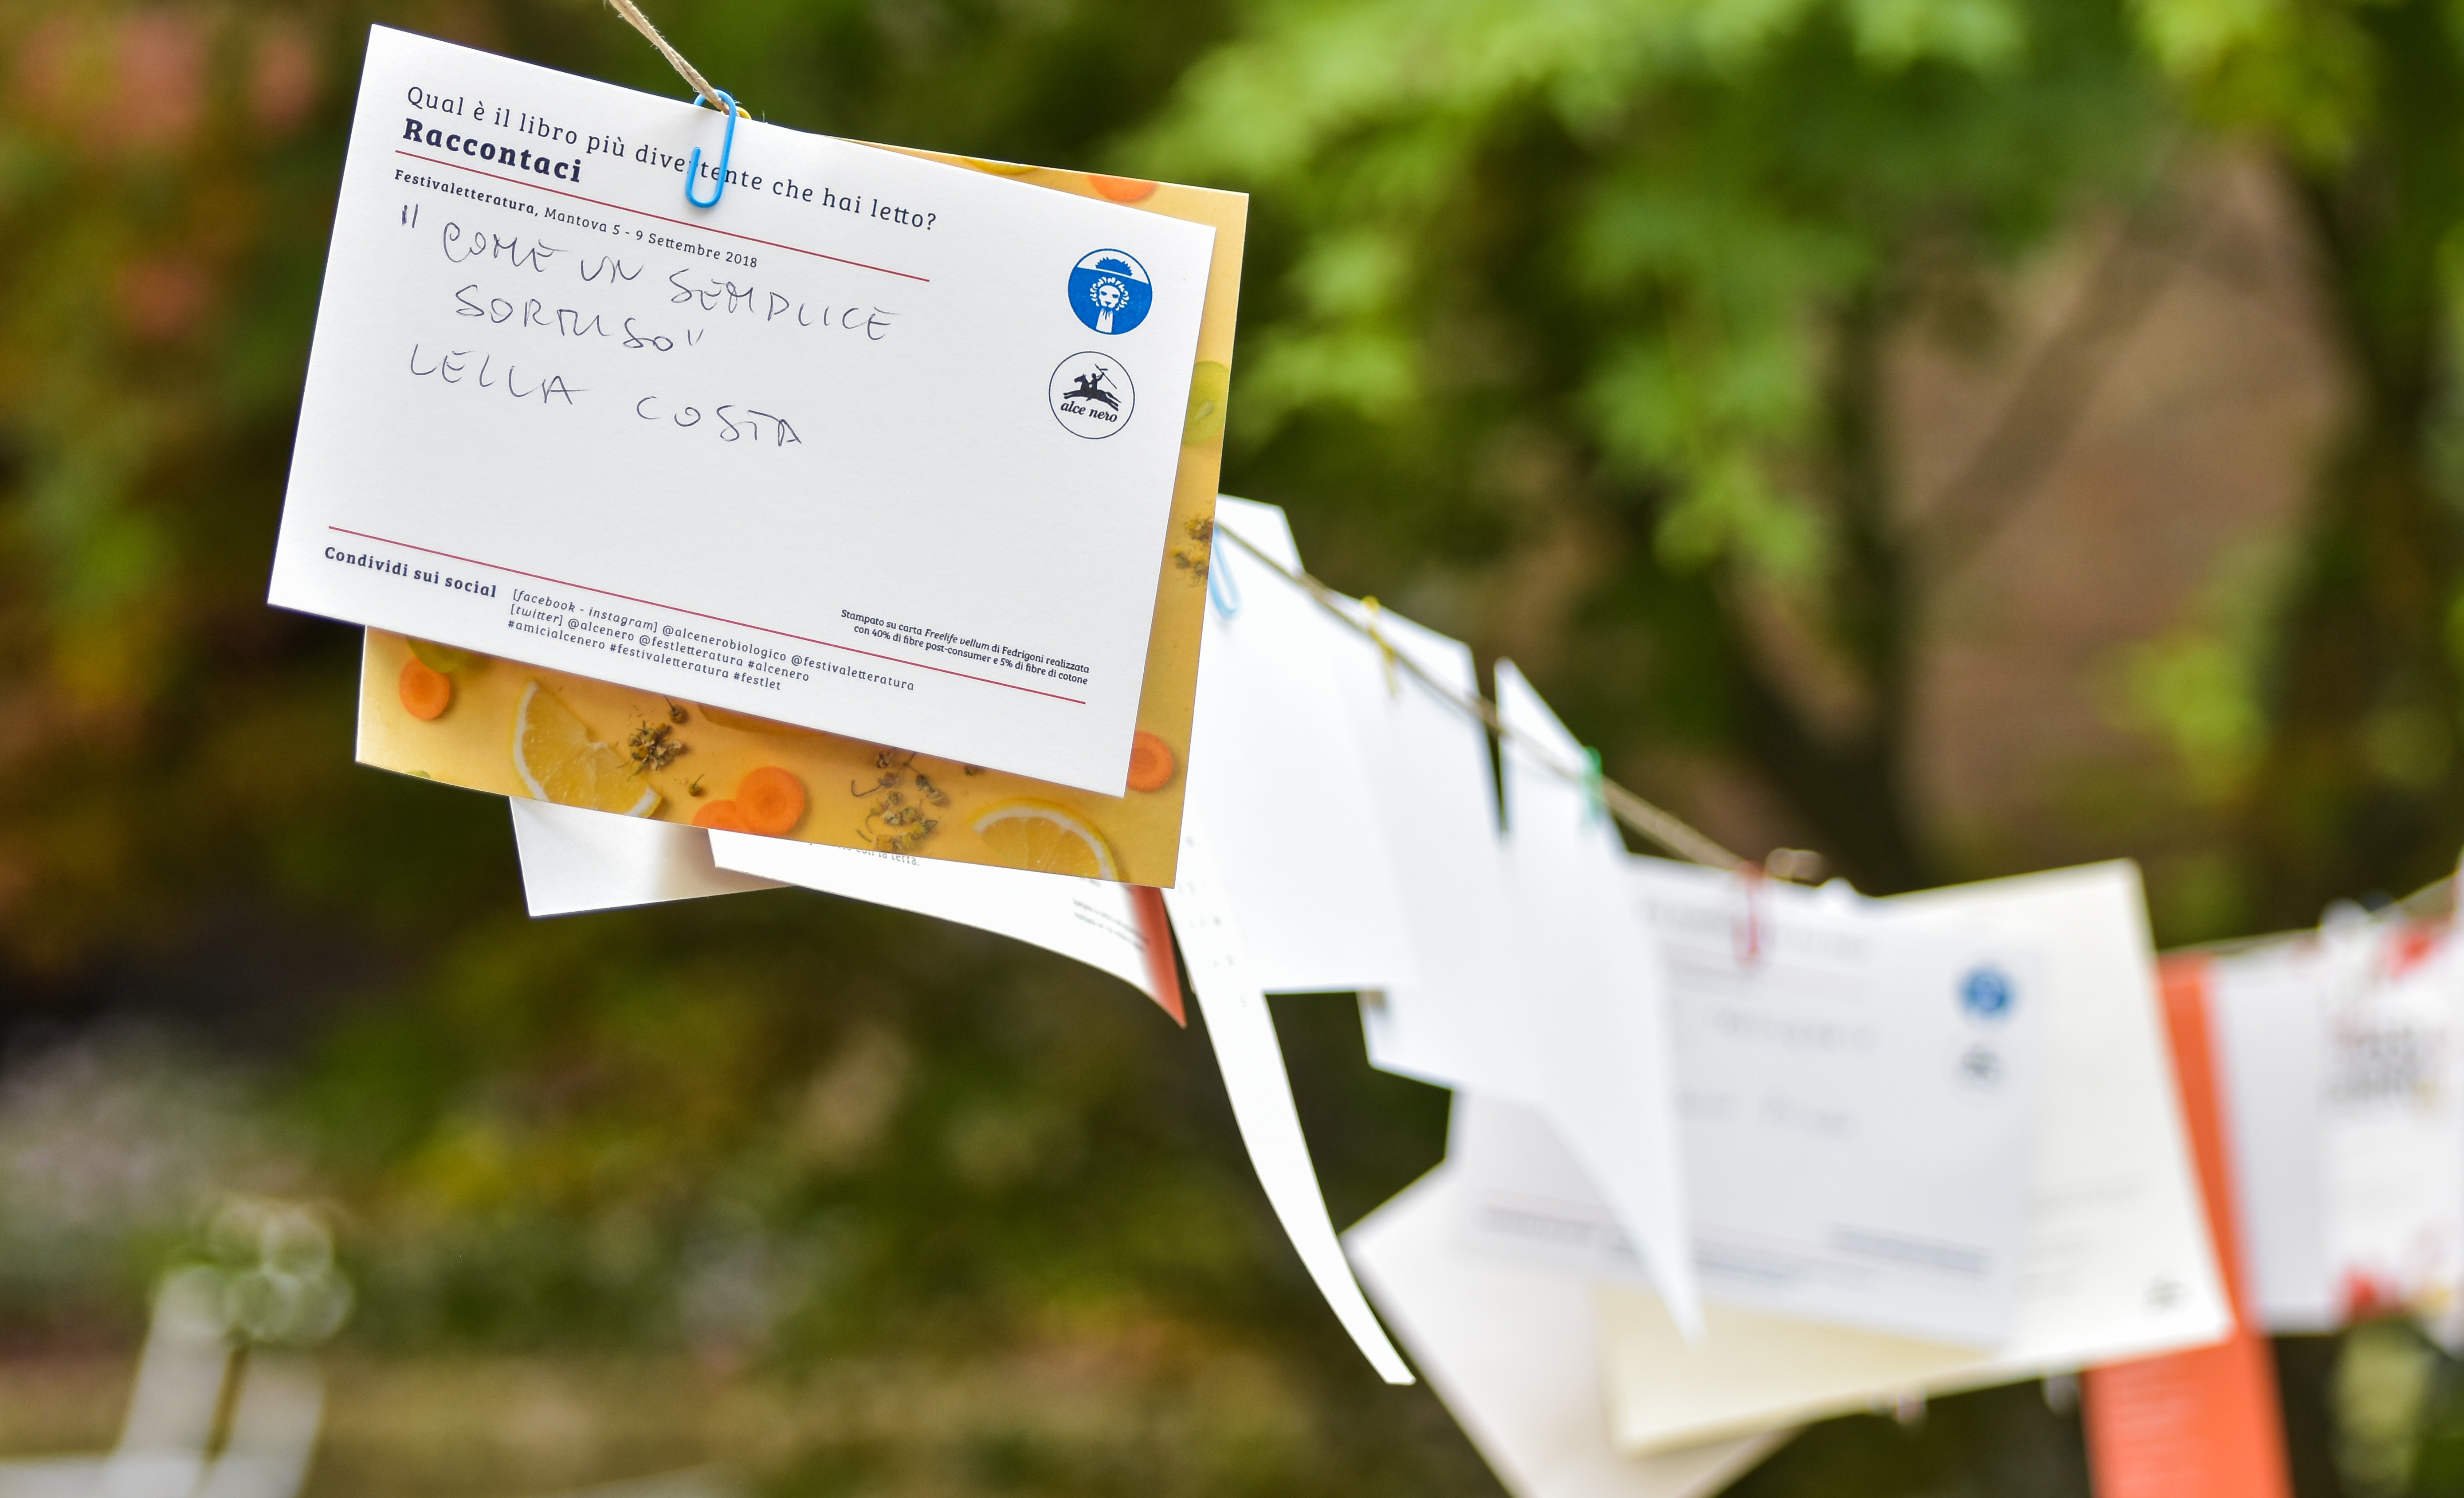 Qual è il libro più divertente che hai letto?
Raccontaci
Festivaletteratura, Mantova 5 - 9 Settembre 2018
"COME UN SEMPLICE
SORRISO"
LELLA COSTA
alce nero
Condividi sui social
[facebook - instagram] @alcenerobiologico @festivaletteratura
[twitter] @alcenero @festletteratura #alcenero
#amicialcenero #festivaletteratura #festlet
Stampato su carta Freelife vellum di Fedrigoni realizzata
con 40% di fibre post-consumer e 5% di fibre di cotone
con la terra.